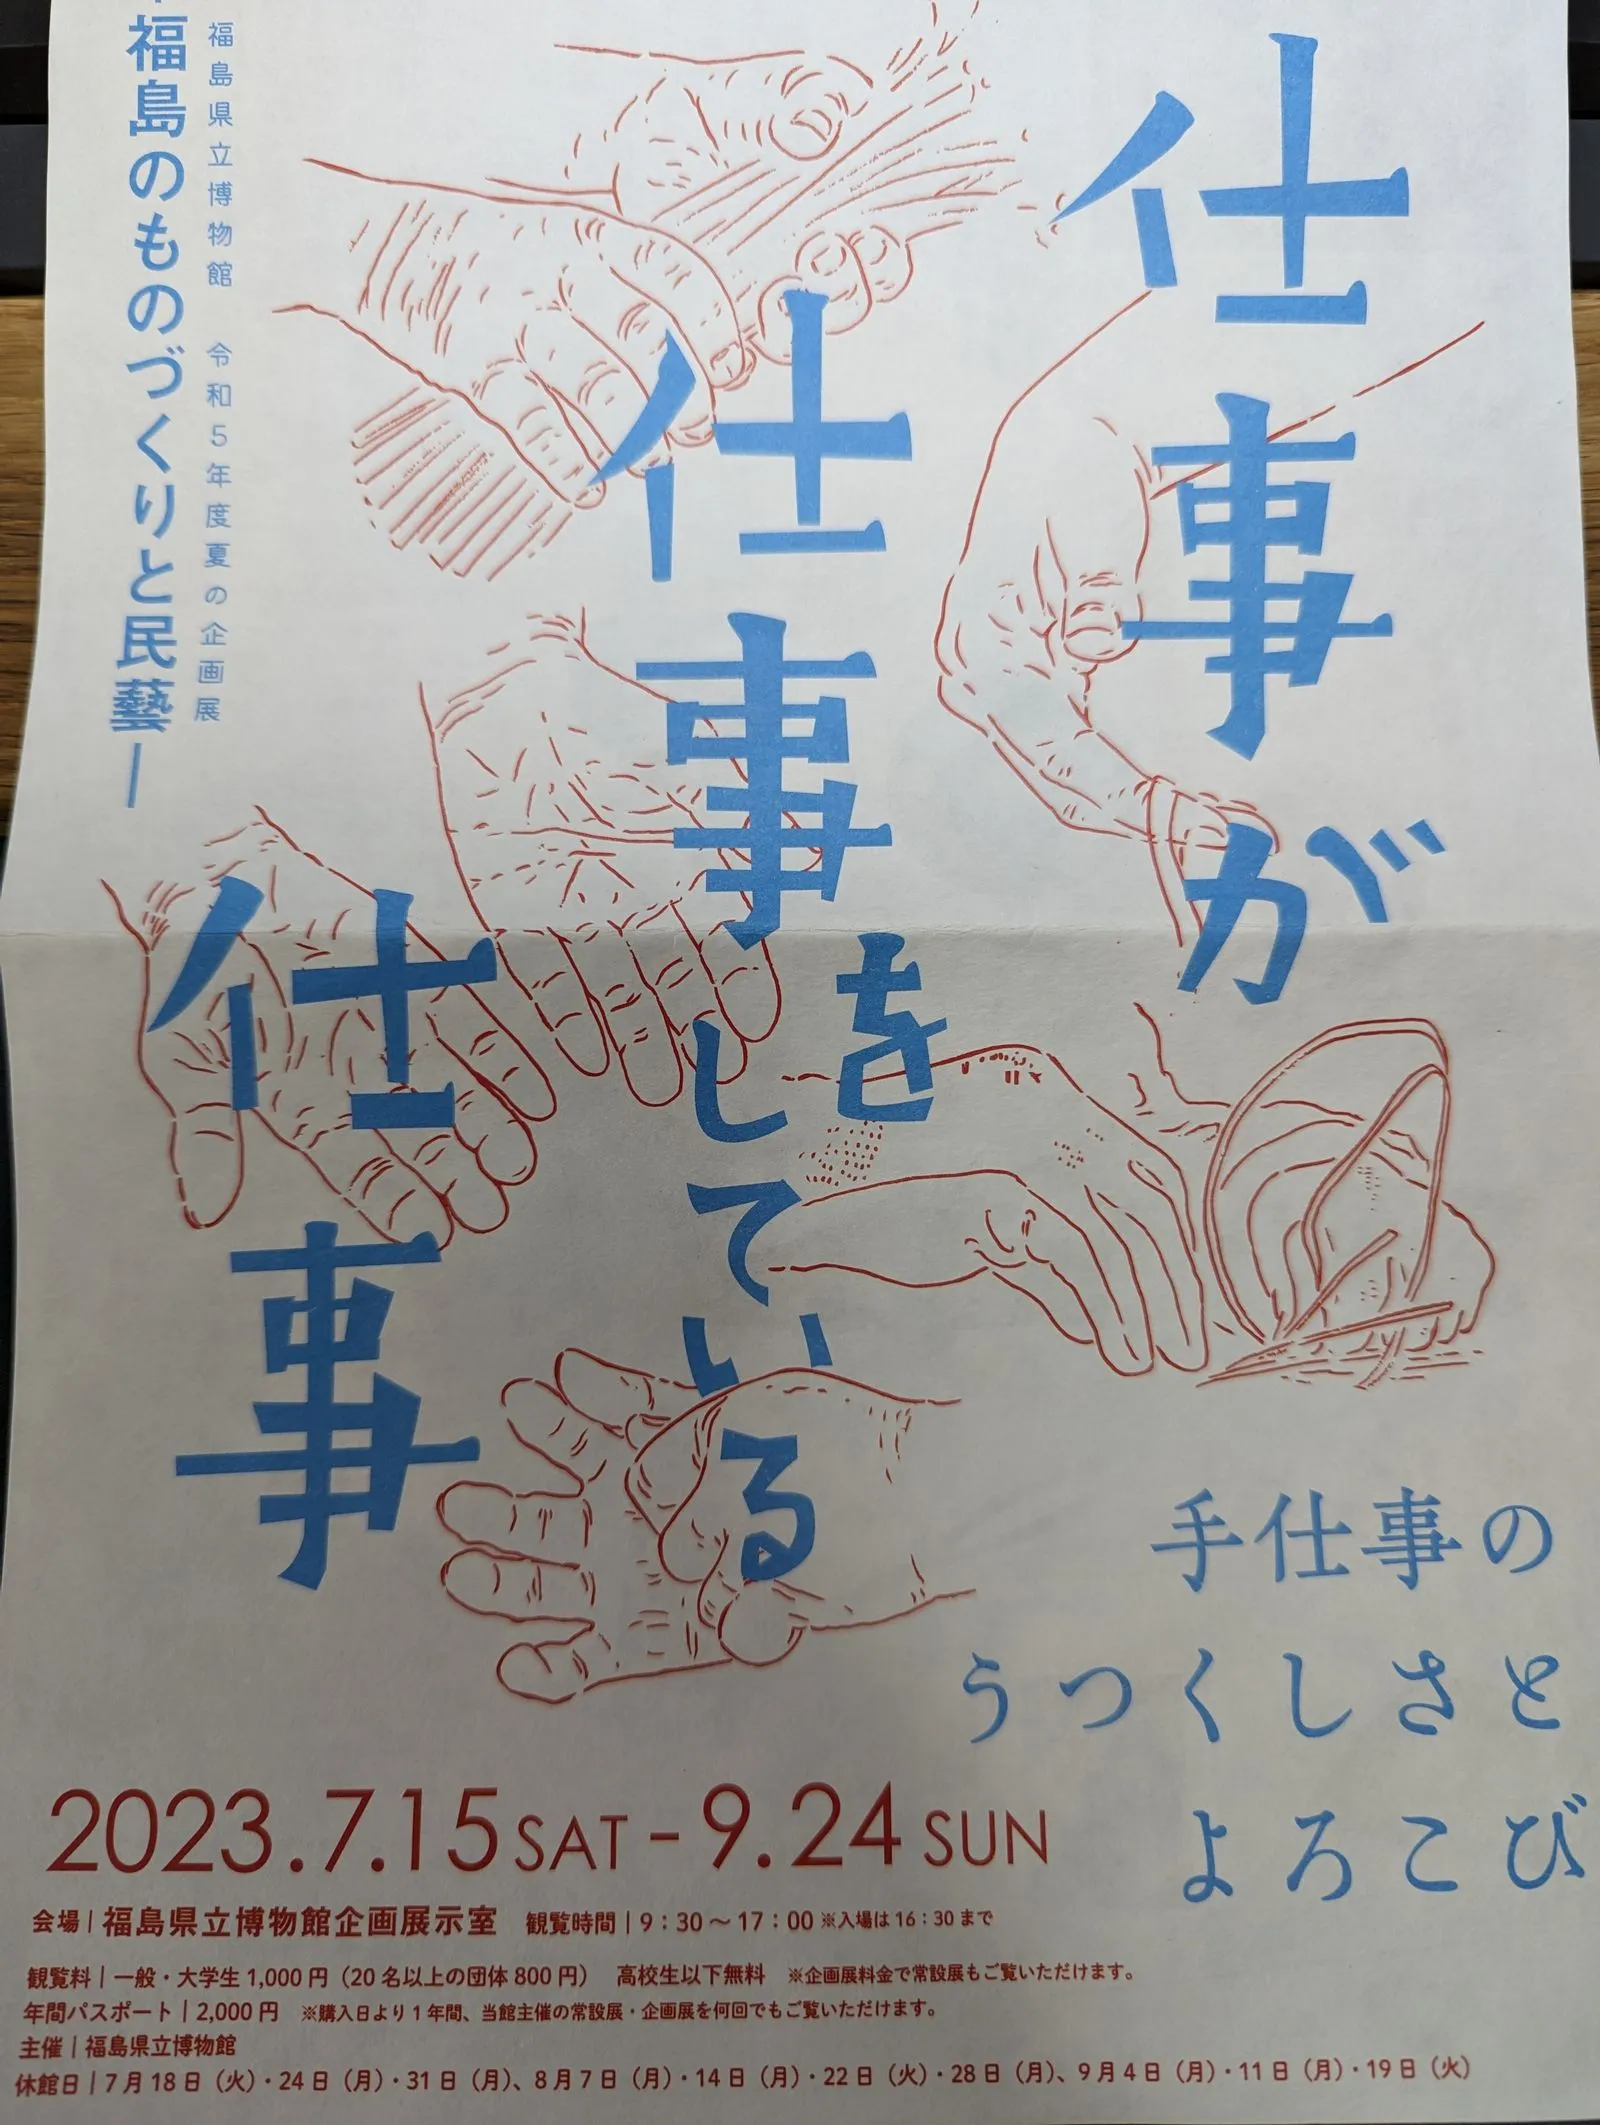 仕事が
仕事をしている
仕事
福島県立博物館 令和5年度夏の企画展
福島のものづくりと民藝―
手仕事の
うつくしさと
よろこび
2023.7.15 SAT - 9.24 SUN
会場|福島県立博物館企画展示室 観覧時間|9:30～17:00 ※入場は16:30まで
観覧料|一般・大学生1,000円（20名以上の団体800円） 高校生以下無料 ※企画展料金で常設展もご覧いただけます。
年間パスポート|2,000円 ※購入日より1年間、当館主催の常設展・企画展を何回でもご覧いただけます。
主催|福島県立博物館
休館日|7月18日（火）・24日（月）・31日（月）、8月7日（月）・14日（月）・22日（火）・28日（月）、9月4日（月）・11日（月）・19日（火）